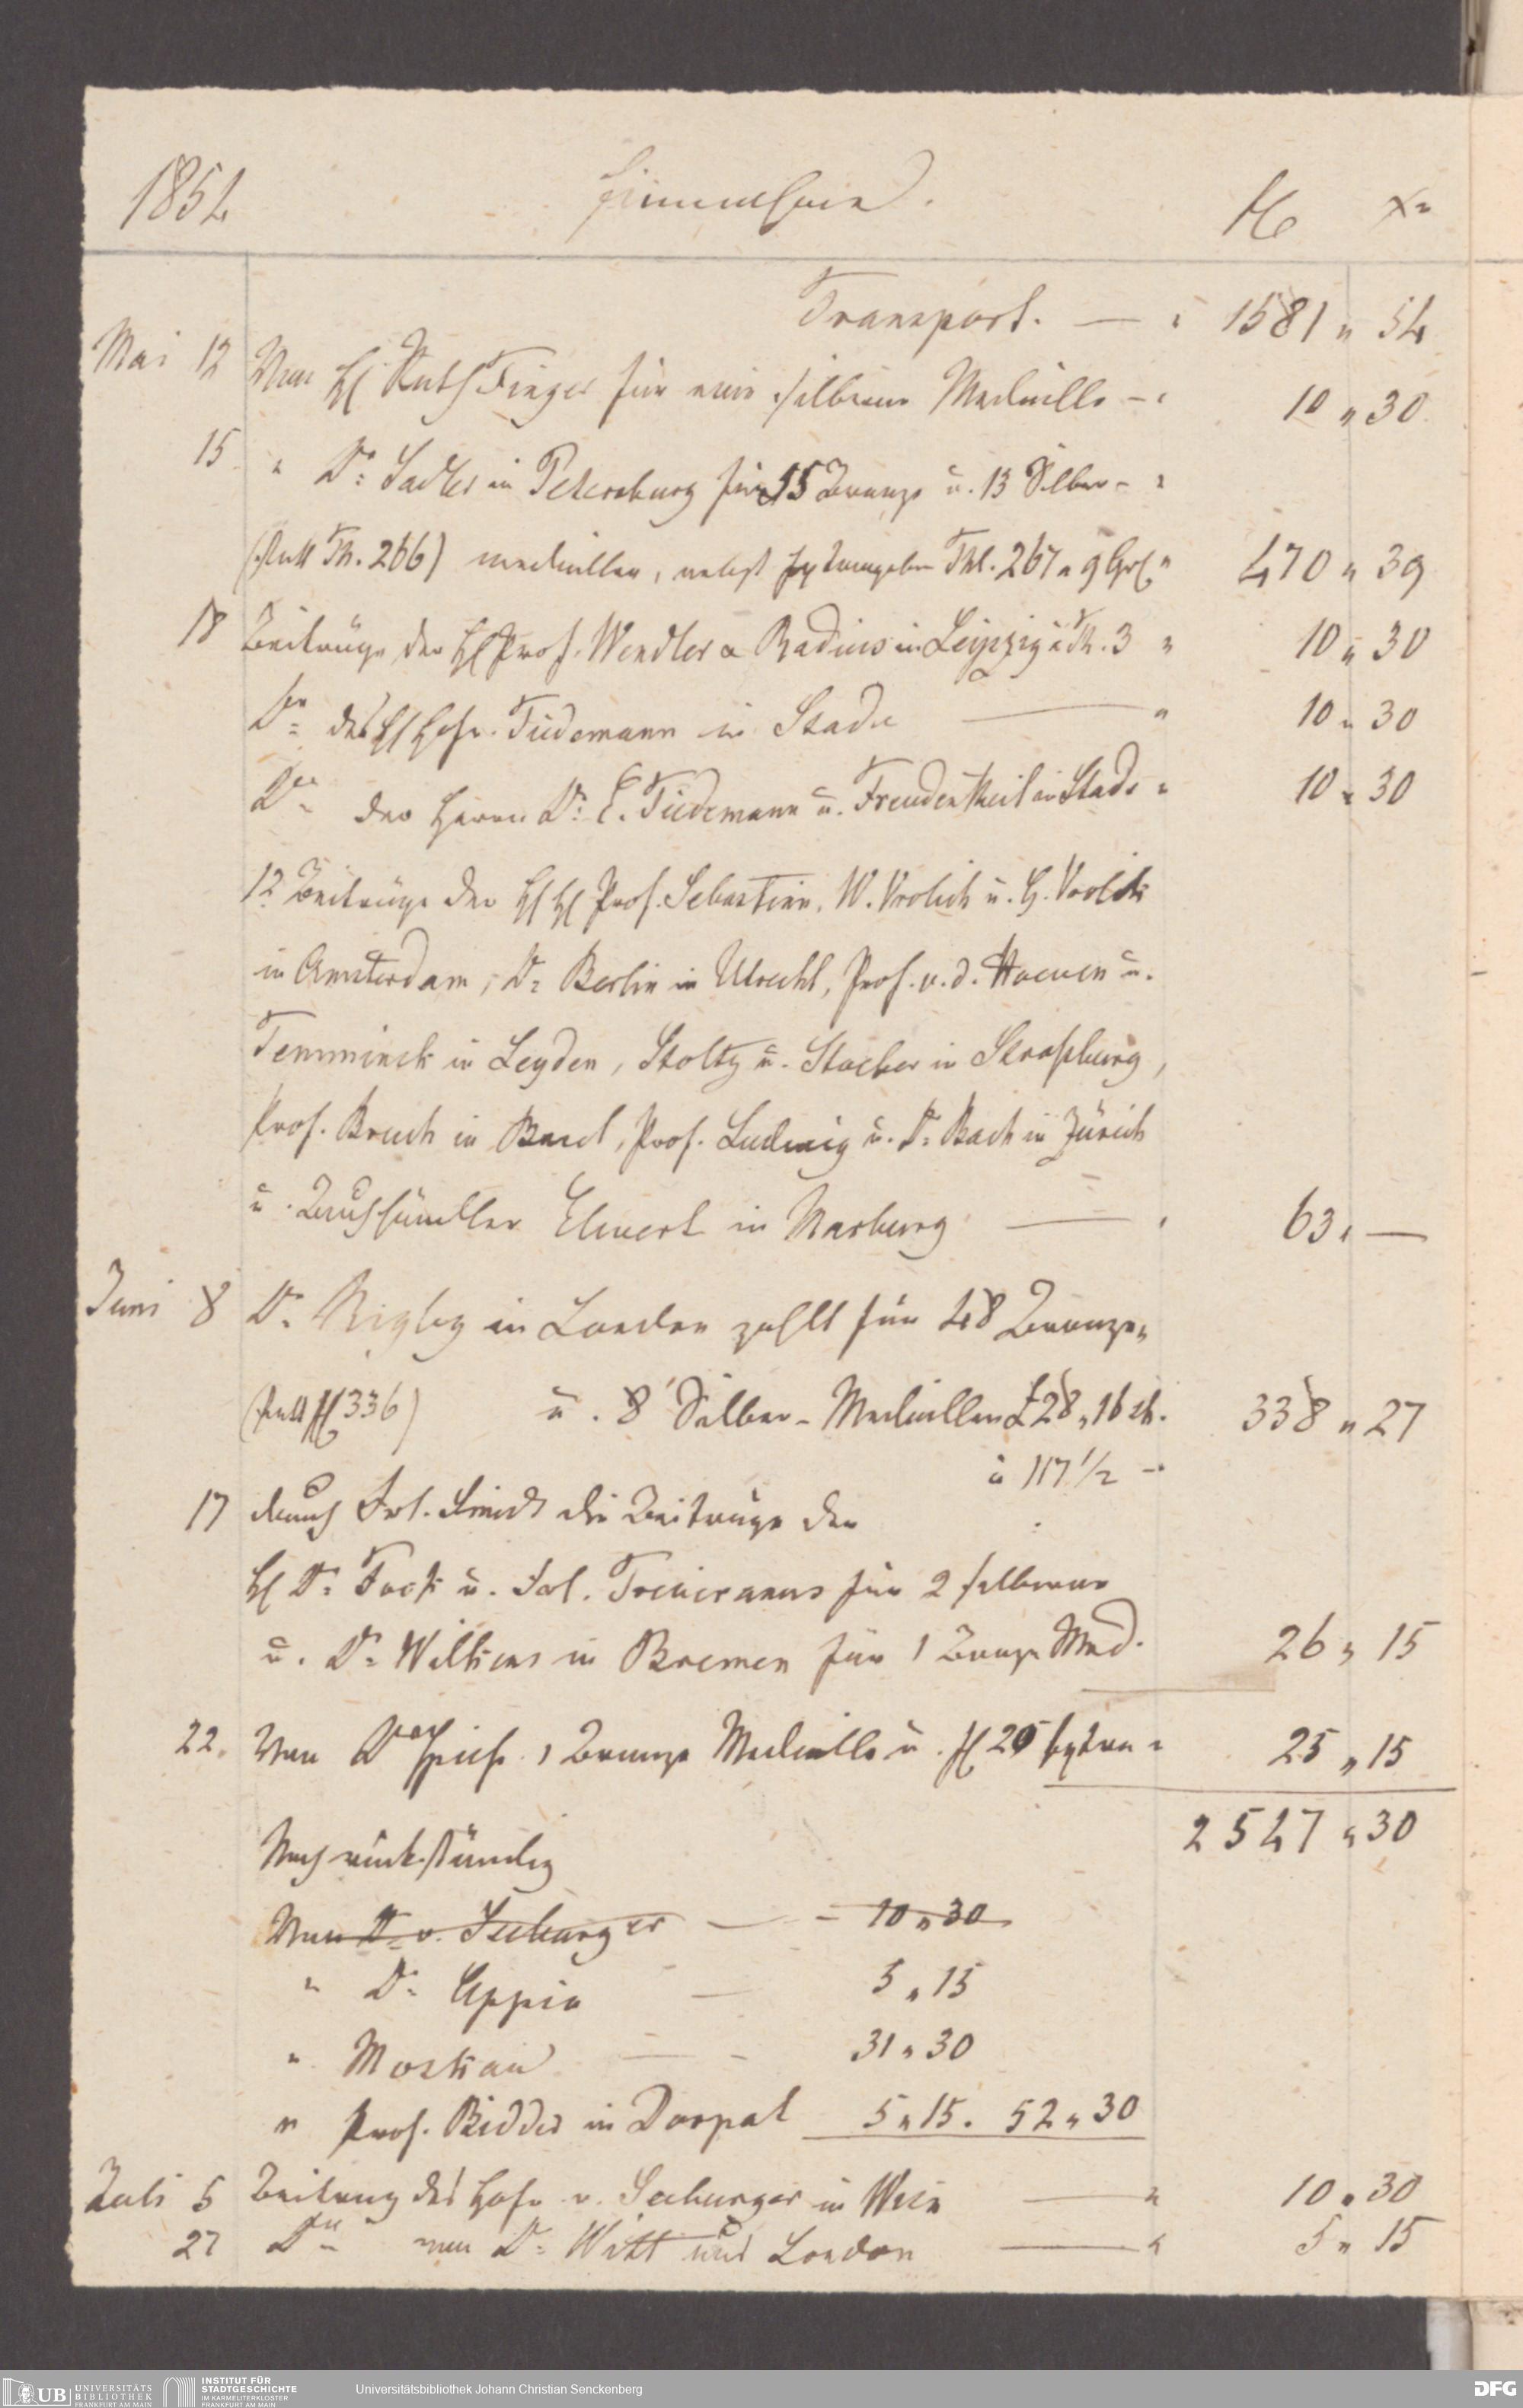 1854 Einnahme. fl xr
Transport. — " 1581 " 54
Mai 12 Von H Rath Finger für eine silberne Medaille – " 10 " 30
15 " Dr Sadler in Petersburg für 55 Bronze u. 13 Silber- "
(statt Th. 266) medaillen, nebst Thl. 267 " 9 Grs " 470 " 39
18 Beiträge der H Prof. Wendler & Radius in Leipzig à Th. 3 " 10 " 30
Do des H Hofr. Tiedemann in Stade — " 10 " 30
Do der Herren Dr. E. Tiedemann u. Freudentheil in Stade " 10 " 30
12 Beiträge der H H Prof. Sebastian, W. Vrolick u. G. Vrolik
in Amsterdam, Dr Berlin in Utrecht, Prof. v. d. Hoeven u.
Temminck in Leyden, Stoltz u. Stoeber in Strasburg,
Prof. Bruch in Basel, Prof. Ludwig u. Dr Bach in Zürich
u. Buchhändler Elwert in Marburg — " 63 " —
Juni 8 Dr. Rigby in London zahlt für 48 Bronze "
(statt fl 336) u. 8 Silber-Medaillen £ 28 " 16 sh. 338 " 27
à 117 1/2 –
17 durch Smidt die Beiträge der
H Dr. Focke u. Treviranus für 2 silberne
u. Dr Wilkens in Bremen für 1 Bronze Med. 26 " 15
22. Von Dr Spiess 1 Bronze Medaille u. fl 20 extra " 25 " 15
2547 " 30
Noch rückständig
Von Dr v. Seeburger — – 10 " 30
" Dr. Appia — 5 " 15
" Moskau — – 31 " 30
" Prof. Bidder in Dorpat 5 " 15. 52 " 30
Juli 5 Beitrag des Hofr v. Seeburger in Wien — " 10 " 30
27 Do von Dr. Witt aus London — " 5 " 15
UB UNIVERSITÄTS
BIBLIOTHEK
FRANKFURT AM MAIN
INSTITUT FÜR
STADTGESCHICHTE
IM KARMELITERKLOSTER
FRANKFURT AM MAIN
Universitätsbibliothek Johann Christian Senckenberg
DFG